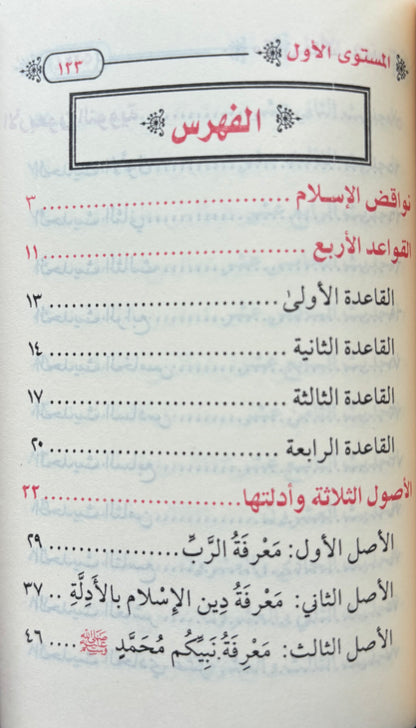 المستوى الأول ١٢٣
الفهرس
نواقض الإسلام ........................ ٣
القواعد الأربع ........................ ١١
القاعدة الأولىٰ ........................ ١٣
القاعدة الثانية ........................ ١٤
القاعدة الثالثة ........................ ١٧
القاعدة الرابعة ........................ ٢٠
الأصول الثلاثة وأدلتها ........................ ٢٢
الأصل الأول: مَعْرِفَةُ الرَّبِّ .................. ٢٩
الأصل الثاني: مَعْرِفَةُ دِينِ الإِسْلَامِ بالأَدِلَّةِ .. ٣٧
الأصل الثالث: مَعْرِفَةُ نَبِيِّكُم مُحَمَّدٍ ﷺ .... ٤٦